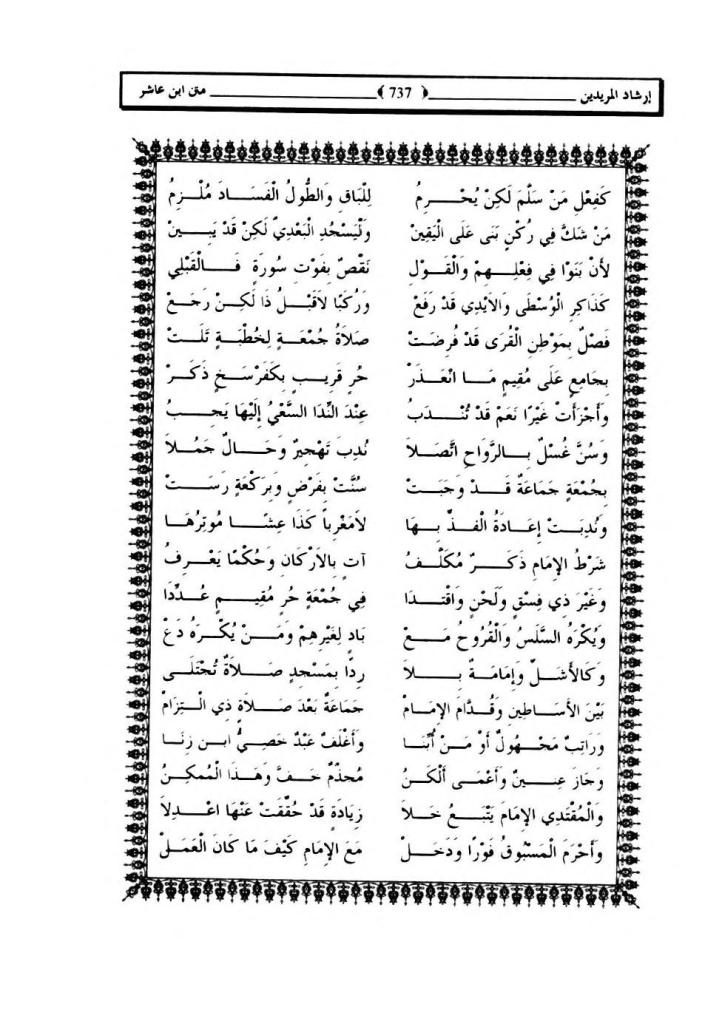 إرشاد المريدين ﴿737﴾ متن ابن عاشر
كَفِعْلِ مَنْ سَلَّمَ لَكِنْ يُحْرِمُ لِلْبَاقِ وَالطُّولُ الْفَسَادَ مُلْزِمُ
مَنْ شَكَّ فِي رُكْنٍ بَنَى عَلَى الْيَقِينْ وَلْيَسْجُدِ الْبَعْدِيَّ لَكِنْ قَدْ يَبِينْ
لأَنْ بَنَوْا فِي فِعْلِهِمْ وَالْقَوْلِ نَقْصٌ بِفَوْتِ سُورَةٍ فَالْقَبْلِي
كَذَاكِرِ الْوُسْطَى وَالأَيْدِي قَدْ رَفَعْ وَرُكَبًا لاَقَبْلُ ذَا لَكِنْ رَجَعْ
فَصْلٌ بِمَوْطِنِ الْقُرَى قَدْ فُرِضَتْ صَلاَةُ جُمْعَةٍ لِخُطْبَةٍ تَلَتْ
بِجَامِعٍ عَلَى مُقِيمٍ مَا انْعَذَرْ حُرٍ قَرِيبٍ بِكَفَرْسَخٍ ذَكَرْ
وَأَجْزَأَتْ غَيْرًا نَعَمْ قَدْ تُنْدَبُ عِنْدَ النِّدَا السَّعْيُ إِلَيْهَا يَجِبُ
وَسُنَّ غُسْلٌ بِالرَّوَاحِ اتَّصَلاَ نُدِبَ تَهْجِيرٌ وَحَالٌ جَمُلاَ
بِجُمْعَةٍ جَمَاعَةٌ قَدْ وَجَبَتْ سُنَّتْ بِفَرْضٍ وَبِرَكْعَةٍ رَسَتْ
وَنُدِبَتْ إِعَادَةُ الْفَذِّ بِهَا لاَمَغْرِباً كَذَا عِشًا مُوتِرُهَا
شَرْطُ الإِمَامِ ذَكَرٌ مُكَلَّفُ آتٍ بِالأَرْكَانِ وَحُكْمًا يَعْرِفُ
وَغَيْرَ ذِي فِسْقٍ وَلَحْنٍ وَاقْتِدَا فِي جُمْعَةٍ حُرٍ مُقِيمٍ عُدِّدَا
وَيُكْرَهُ السَّلَسُ وَالْقُرُوحُ مَعْ بَادٍ لِغَيْرِهِمْ وَمَنْ يُكْرَهُ دَعْ
وَكَالأَشَلِّ وَإِمَامَةٌ بِلاَ رِدًا بِمَسْجِدٍ صَلاَةٌ تُجْتَلَى
بَيْنَ الأَسَاطِينِ وَقُدَّامَ الإِمَامْ جَمَاعَةٌ بَعْدَ صَلاَةِ ذِي الْتِزَامْ
وَرَاتِبٌ مَجْهُولٌ أَوْ مَنْ أُبِنَا وَأَغْلَفٌ عَبْدٌ خَصِيٌّ ابن زِنَا
وَجَازَ عِنِينٌ وَأَعْمَى أَلْكَنُ مُجَذَّمٌ خَفَّ وَهَذَا الْمُمْكِنُ
وَالْمُقْتَدِي الإِمَامَ يَتْبَعُ خَلاَ زِيَادَةٍ قَدْ حُقِّقَتْ عَنْهَا اعْدِلاَ
وَأَحْرَمَ الْمَسْبُوقُ فَوْرًا وَدَخَلْ مَعَ الإِمَامِ كَيْفَ مَا كَانَ الْعَمَلْ